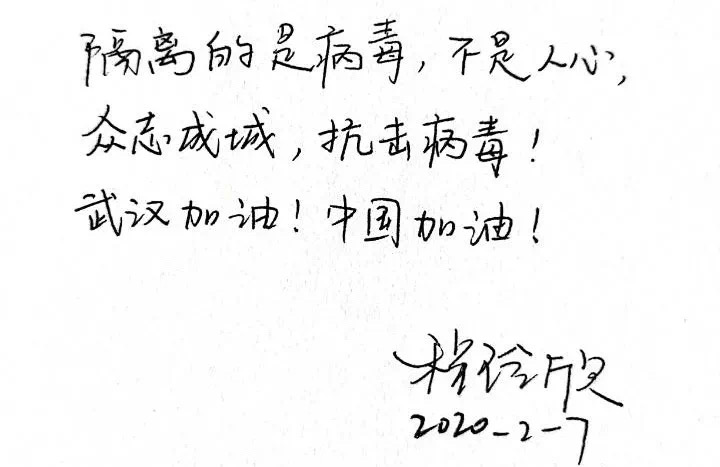 隔离的是病毒,不是人心,
众志成城,抗击病毒!
武汉加油!中国加油!
2020-2-7